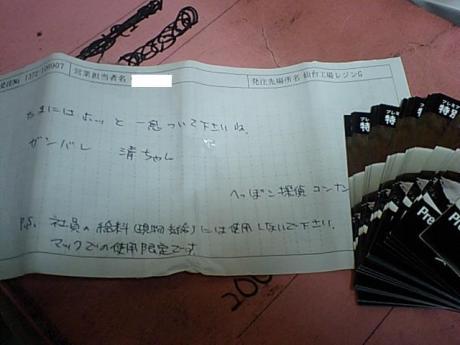 営業担当者名
発注先場所名 仙台工場レジンG
たまにはちょっと一息ついて下さいね。
ガンバレ 清ちゃん
へっぽこ探偵 コンナン
P.S. 社員の給料(現物支給)には使用しないで下さい。
マックでの使用限定です。
プレミア
特別
Pre
200